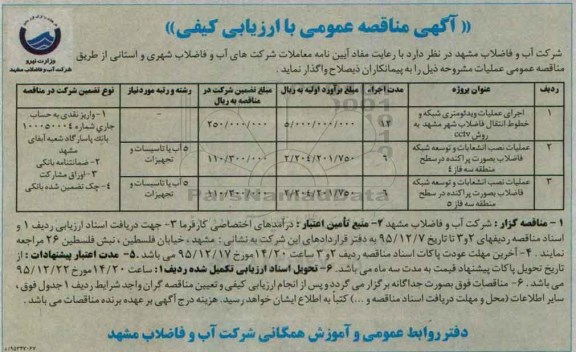 « آگهی مناقصه عمومی با ارزیابی کیفی »
وزارت نیرو
شرکت آب و فاضلاب مشهد
شرکت آب و فاضلاب مشهد در نظر دارد با رعایت مفاد آیین نامه معاملات شرکت های آب و فاضلاب شهری و استانی از طریق
مناقصه عمومی عملیات مشروحه ذیل را به پیمانکاران ذیصلاح واگذار نماید.
ردیف عنوان پروژه مدت اجراء مبلغ برآورد اولیه به ریال مبلغ تضمین شرکت در مناقصه به ریال رشته و رتبه موردنیاز نوع تضمین شرکت در مناقصه
۱ اجرای عملیات ویدئومتری شبکه و خطوط انتقال فاضلاب شهر مشهد به روش cctv ۱۲ ۵/۰۰۰/۰۰۰/۰۰۰ ۲۵۰/۰۰۰/۰۰۰ -
۲ عملیات نصب انشعابات و توسعه شبکه فاضلاب بصورت پراکنده در سطح منطقه سه فاز ۴ ۶ ۲/۲۰۴/۲۰۱/۷۵۰ ۱۱۰/۳۰۰/۰۰۰ ۵ آب یا تاسیسات و تجهیزات
۳ عملیات نصب انشعابات و توسعه شبکه فاضلاب بصورت پراکنده در سطح منطقه سه فاز ۵ ۶ ۲/۲۰۴/۲۰۱/۷۵۰ ۱۱۰/۳۰۰/۰۰۰ ۵ آب یا تاسیسات و تجهیزات
۱- واریز نقدی به حساب
جاری شماره ۱۰۰۰۵۰۰۰۴
بانک پاسارگاد شعبه آبفای
مشهد
۲- ضمانتنامه بانکی
۳- اوراق مشارکت
۴- چک تضمین شده بانکی
۱- مناقصه گزار : شرکت آب و فاضلاب مشهد ۲- منبع تأمین اعتبار : درآمدهای اختصاصی کارفرما ۳- جهت دریافت اسناد ارزیابی ردیف ۱ و
اسناد مناقصه ردیفهای ۲و۳ تا تاریخ ۹۵/۱۲/۷ به دفتر قراردادهای این شرکت به نشانی : مشهد ، خیابان فلسطین ، نبش فلسطین ۲۶ مراجعه
نمایند . ۴- آخرین مهلت عودت پاکات اسناد مناقصه ردیف ۲و۳ ساعت ۱۴/۲۰ مورخ ۹۵/۱۲/۱۷ می باشد .۵- مدت اعتبار پیشنهادات : از
تاریخ تحویل پاکات پیشنهاد قیمت به مدت سه ماه می باشد . ۶- تحویل اسناد ارزیابی تکمیل شده ردیف ۱: ساعت ۱۴/۲۰ مورخ ۹۵/۱۲/۲۲
می باشد . ۶- مناقصات فوق بصورت جداگانه برگزار می گردد و پس از انجام ارزیابی کیفی و تعیین مناقصه گران واجد شرایط ردیف ۱ جدول فوق ،
سایر اطلاعات (محل و مهلت دریافت اسناد مناقصه و ...) کتبا به اطلاع ایشان خواهد رسید. هزینه درج آگهی بر عهده برنده مناقصات می باشد .
دفتر روابط عمومی و آموزش همگانی شرکت آب و فاضلاب مشهد
ParsNamadData